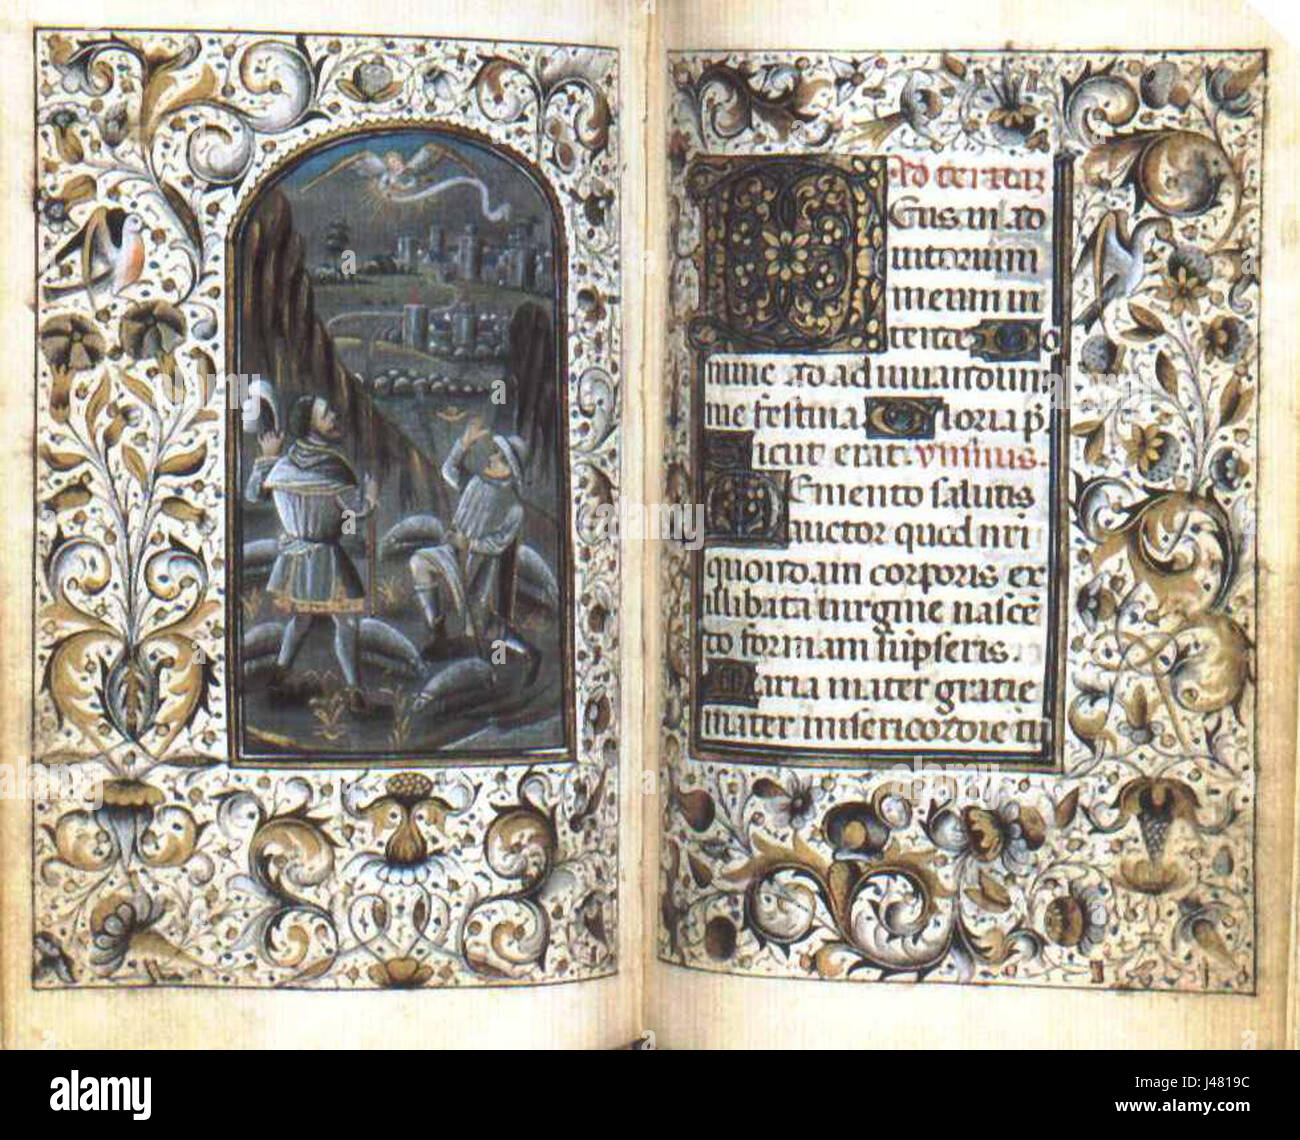 Ad tertiam
Eus in ad
iutorium
meum in
tende Do
mine ad adiuuandum
me festina Gloria p̄.
Sicut erat. ymnus.
Memento salutis
auctor quod nr̄i
quondam corporis ex
illibata uirgine nascē
do formam sūpseris.
Maria mater gratie
mater misericordie tu
a
alamy
alamy stock photo
alamy
Image ID: J4819C
www.alamy.com